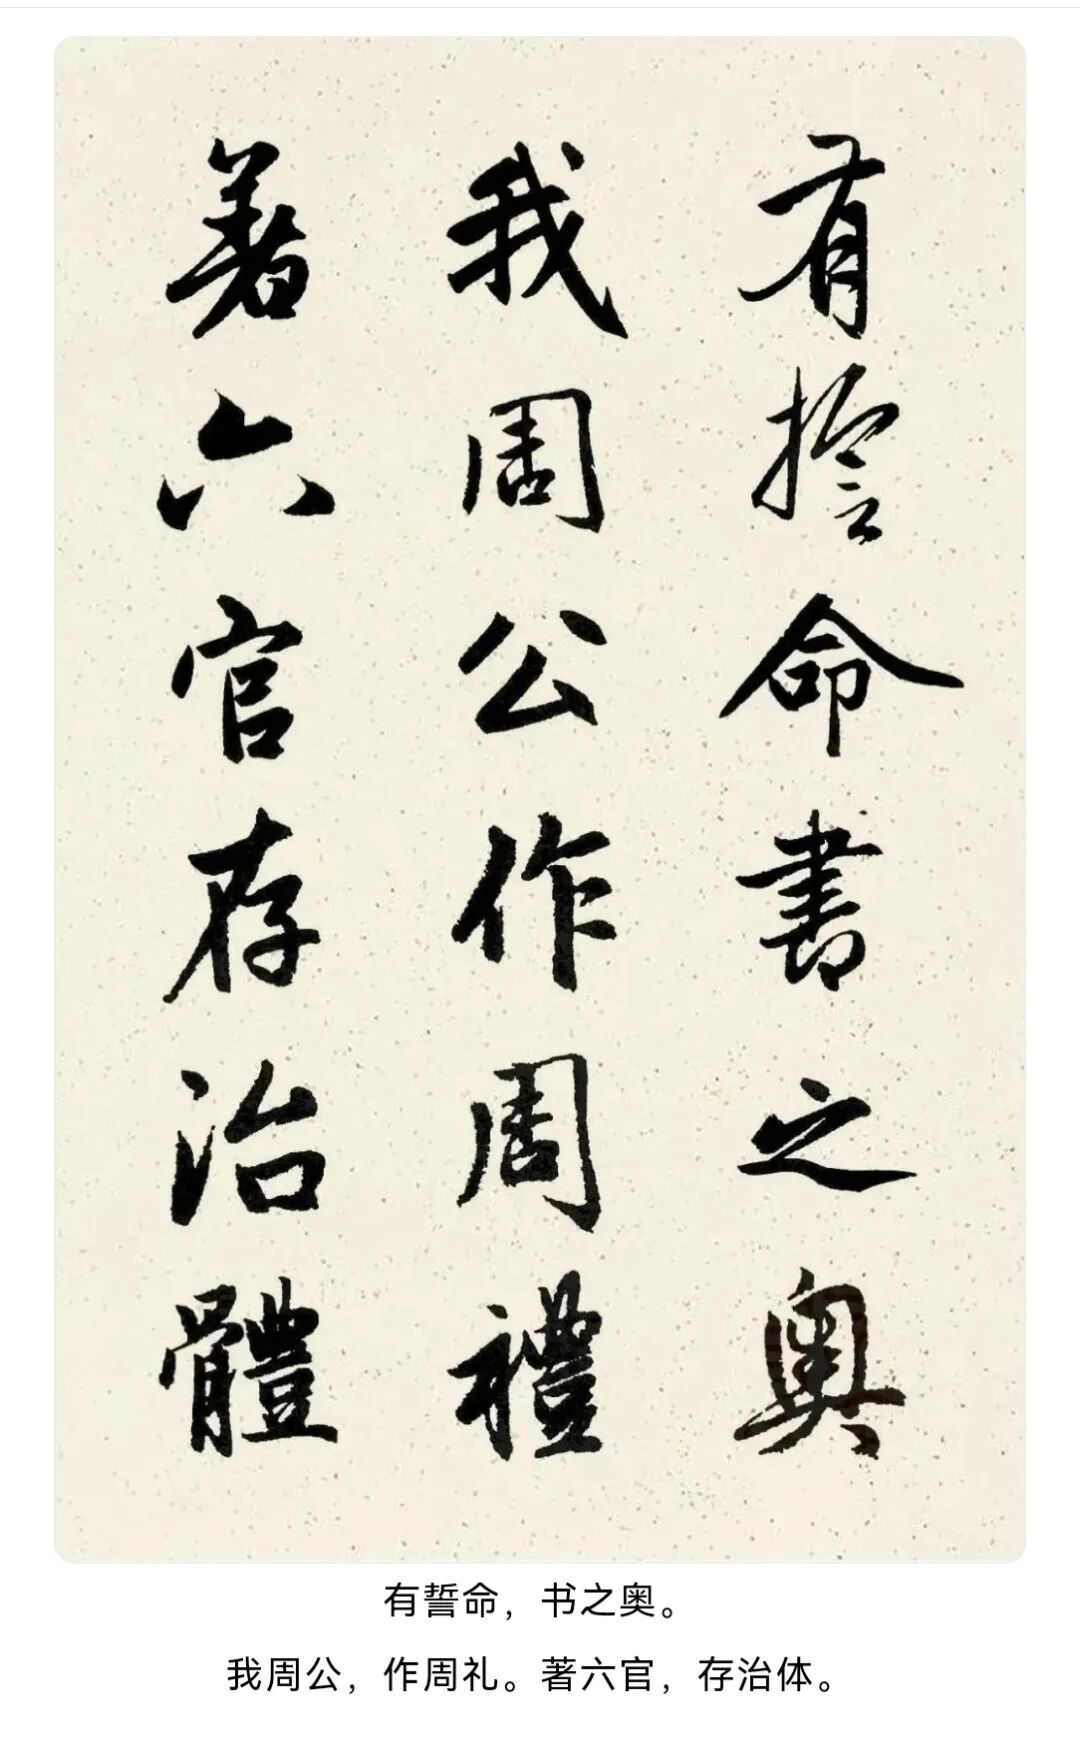 有誓命書之奧
我周公作周禮
著六官存治體
有誓命，书之奥。
我周公，作周礼。著六官，存治体。